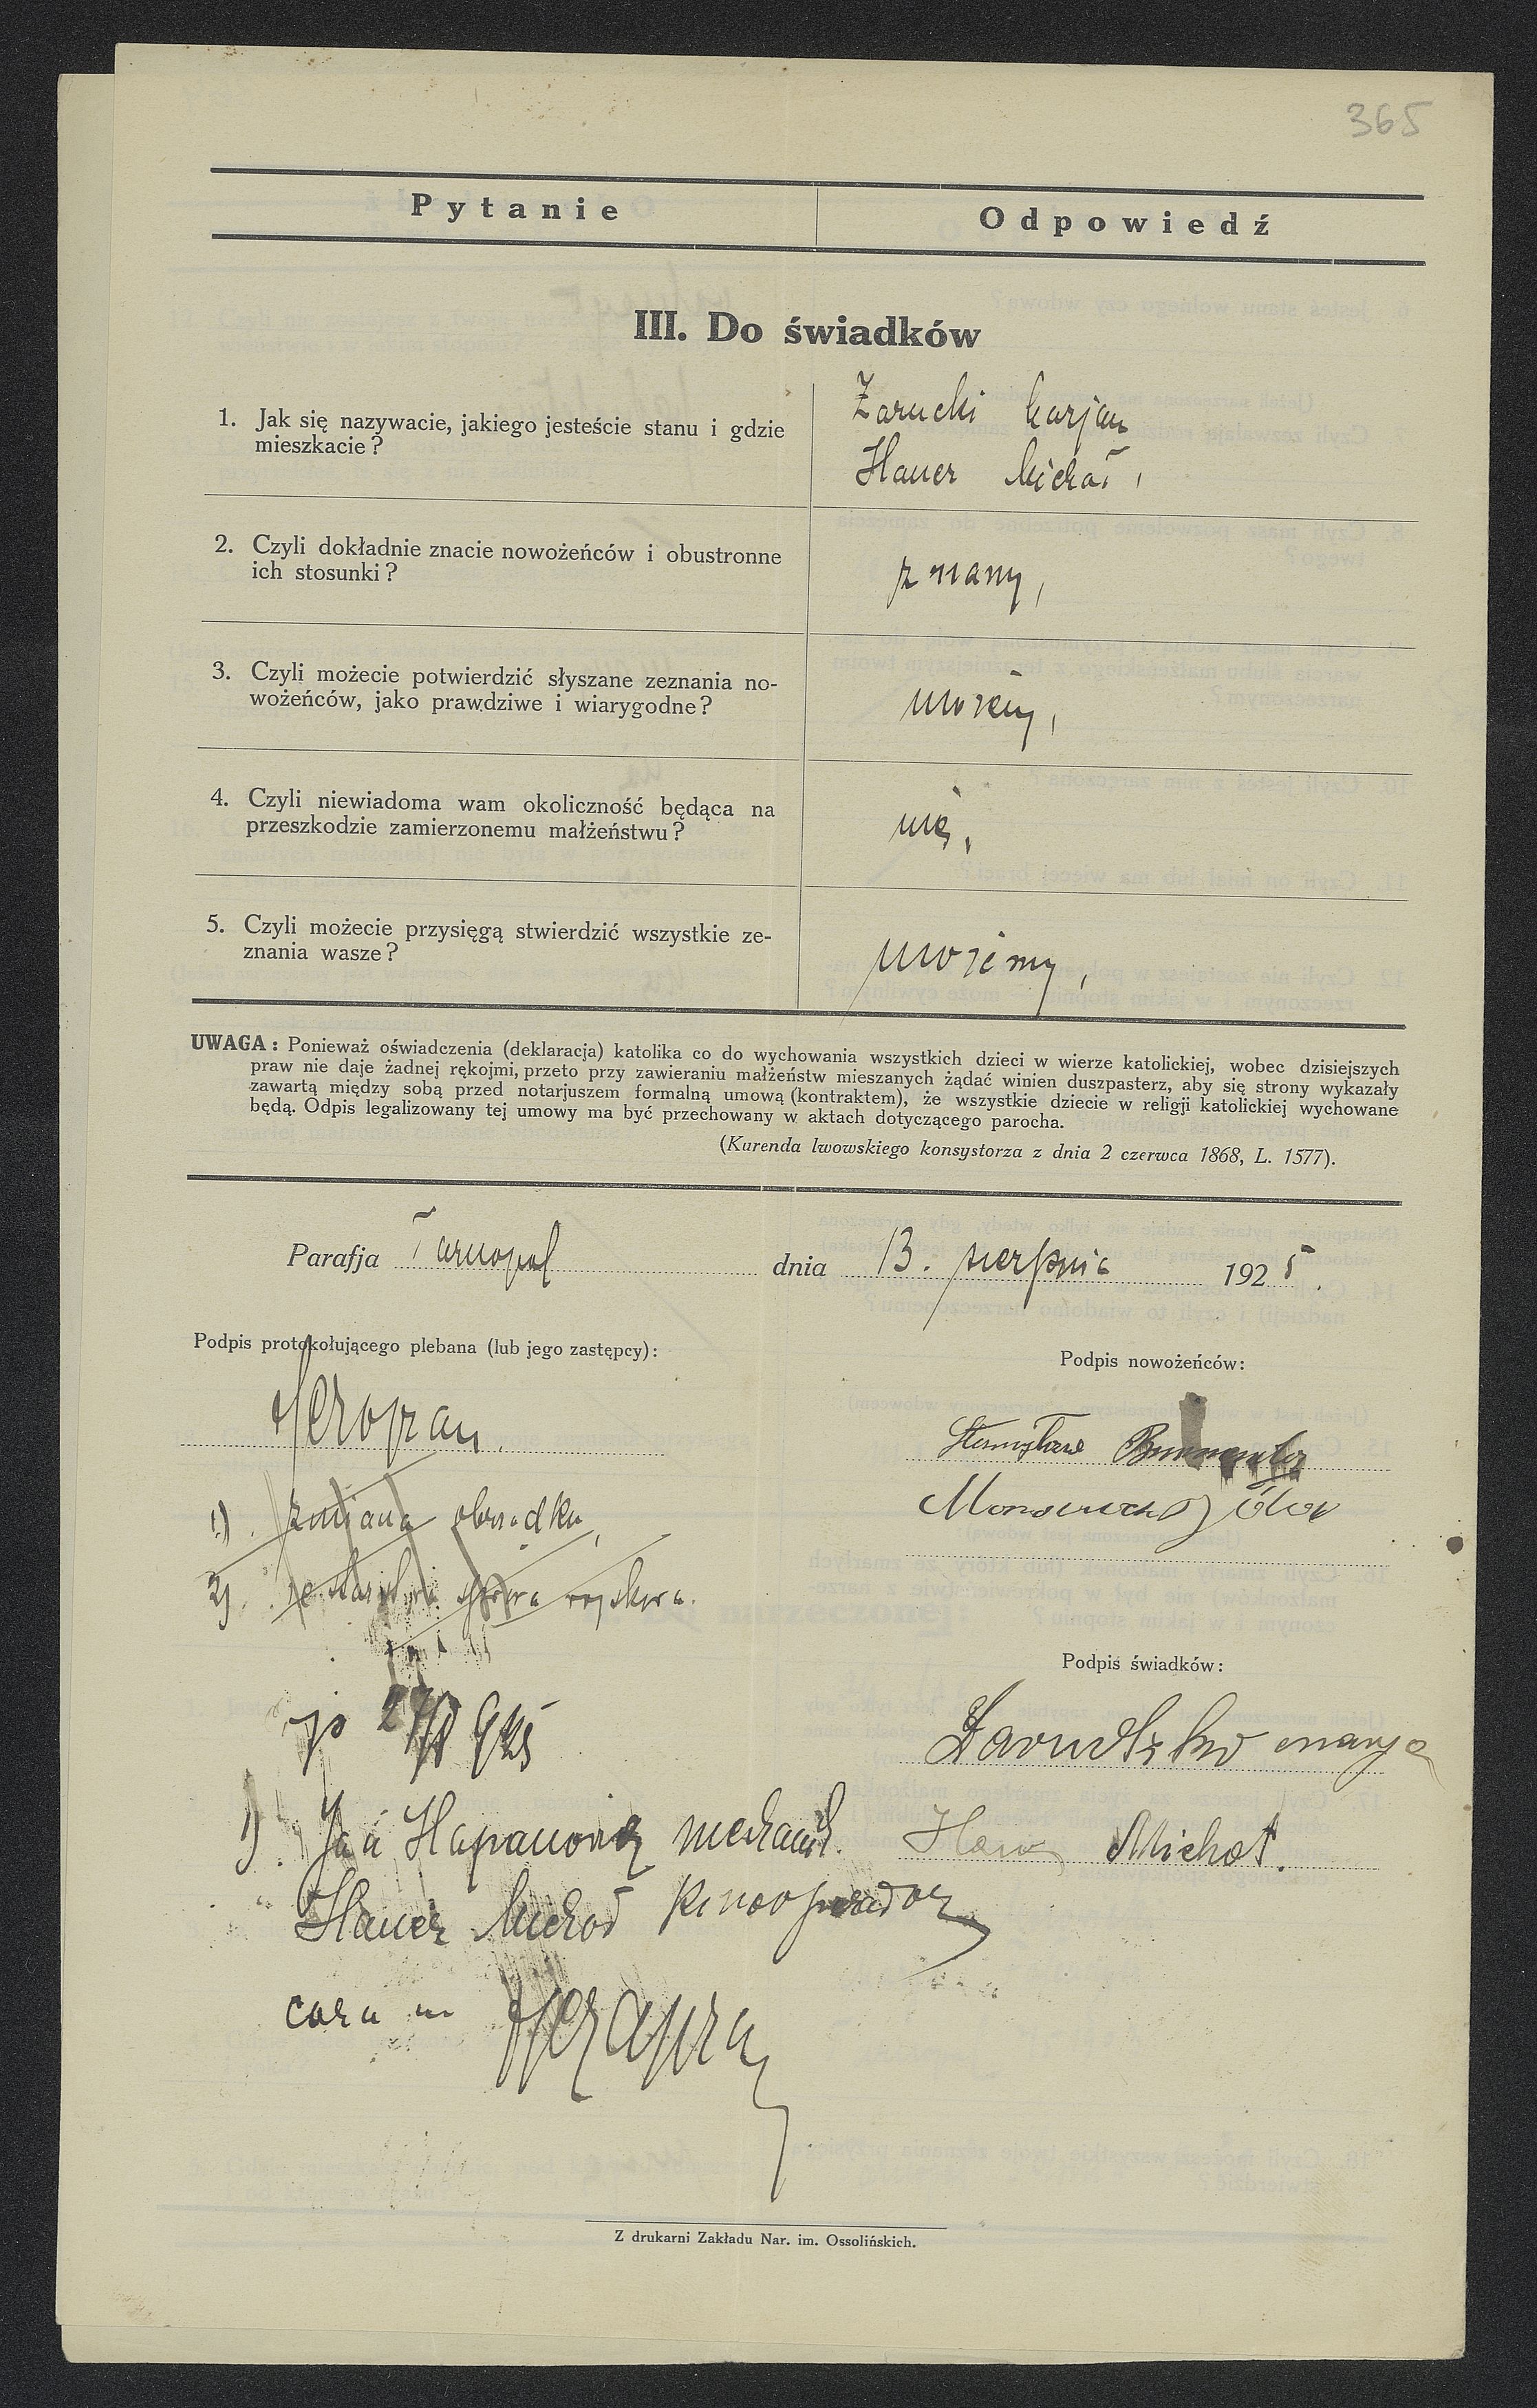 365
Pytanie
Odpowiedź
III. Do świadków
1. Jak się nazywacie, jakiego jesteście stanu i gdzie
mieszkacie?
Zarucki Marjan
Hauer Michał,
2. Czyli dokładnie znacie nowożeńców i obustronne
ich stosunki?
znamy,
3. Czyli możecie potwierdzić słyszane zeznania no-
wożeńców, jako prawdziwe i wiarygodne?
możemy,
4. Czyli niewiadoma wam okoliczność będąca na
przeszkodzie zamierzonemu małżeństwu?
nie,
5. Czyli możecie przysięgą stwierdzić wszystkie ze-
znania wasze?
możemy,
UWAGA: Ponieważ oświadczenia (deklaracja) katolika co do wychowania wszystkich dzieci w wierze katolickiej, wobec dzisiejszych
praw nie daje żadnej rękojmi, przeto przy zawieraniu małżeństw mieszanych żądać winien duszpasterz, aby się strony wykazały
zawartą między sobą przed notarjuszem formalną umową (kontraktem), że wszystkie dziecie w religji katolickiej wychowane
będą. Odpis legalizowany tej umowy ma być przechowany w aktach dotyczącego parocha.
(Kurenda lwowskiego konsystorza z dnia 2 czerwca 1868, L. 1577).
Parafja Tarnopol dnia 13. sierpnia 1925.
Podpis protokołującego plebana (lub jego zastępcy):
Podpis nowożeńców:
Stanisław
1). zmiana obrządku,
2).
Podpis świadków:
1). Jan mechanik.
Michał.
Hauer Michał kinooperator
Z drukarni Zakładu Nar. im. Ossolińskich.